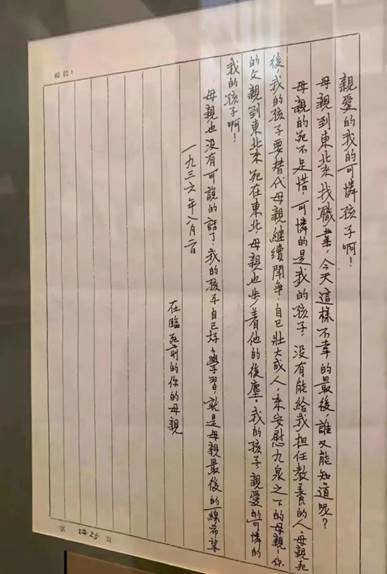 親愛的我的可憐孩子啊！
母親到東北來找職業，今天這樣不幸的最後，誰又能知道呢？
母親的死不足惜，可憐的是我的孩子，沒有能給我担任教養的人。母親死
後，我的孩子要替代母親繼續鬥爭，自己壯大成人，來安慰九泉之下的母親！你
的父親到東北來死在東北，母親也步着他的後塵。我的孩子，親愛的可憐的
我的孩子啊！
母親也沒有可說的話了，我的孩子自己好學習，就是母親最後的一線希望
一九三六年八月二日
在臨死前的你的母親